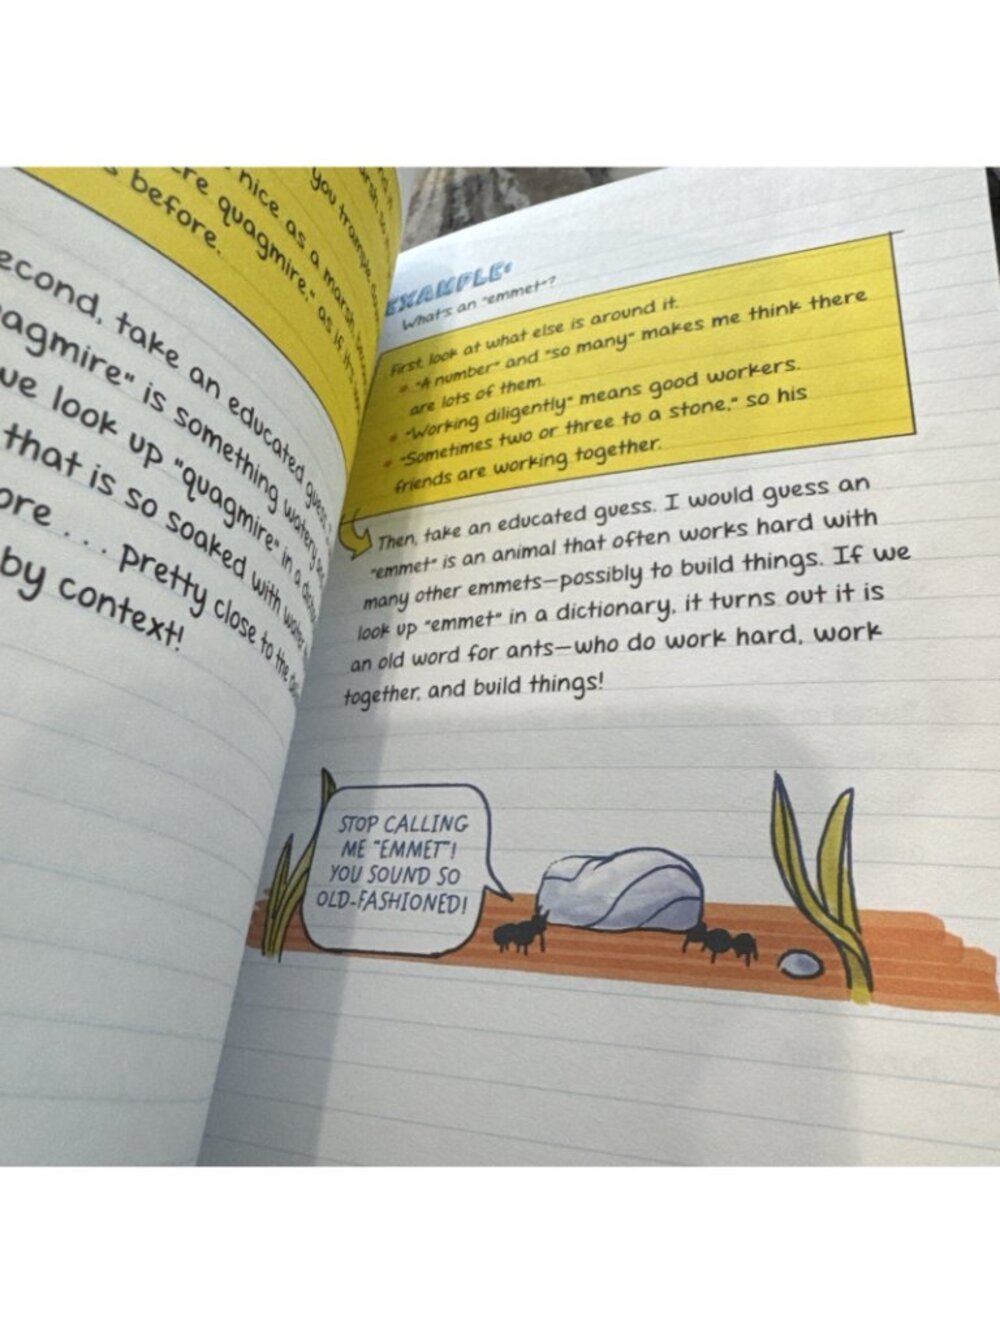 nice as a marsh,
you trample
re quagmire," as if it's
s before.
econd, take an educated guess.
agmire" is something watery
we look up "quagmire" in a
that is so soaked with water
ore . . . pretty close to the
by context!
EXAMPLE:
What's an "emmet"?
First, look at what else is around it.
• "A number" and "so many" makes me think there
are lots of them.
• "Working diligently" means good workers.
• "Sometimes two or three to a stone," so his
friends are working together.
Then, take an educated guess. I would guess an
"emmet" is an animal that often works hard with
many other emmets—possibly to build things. If we
look up "emmet" in a dictionary, it turns out it is
an old word for ants—who do work hard, work
together, and build things!
STOP CALLING
ME "EMMET"!
YOU SOUND SO
OLD-FASHIONED!